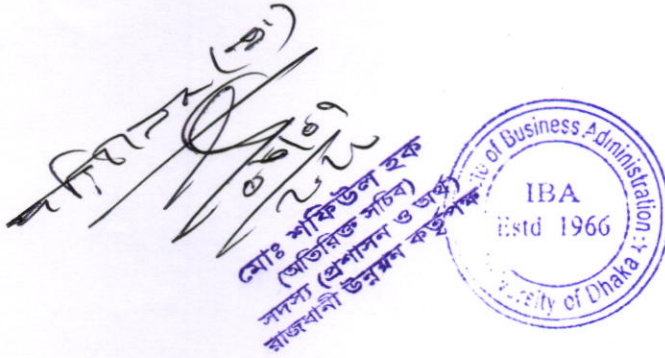 পরিচালক (প্রঃ)
মোঃ শফিউল হক
(অতিরিক্ত সচিব)
সদস্য (প্রশাসন ও অর্থ)
রাজধানী উন্নয়ন কর্তৃপক্ষ
of Business Administration
IBA
Estd 1966
University of Dhaka